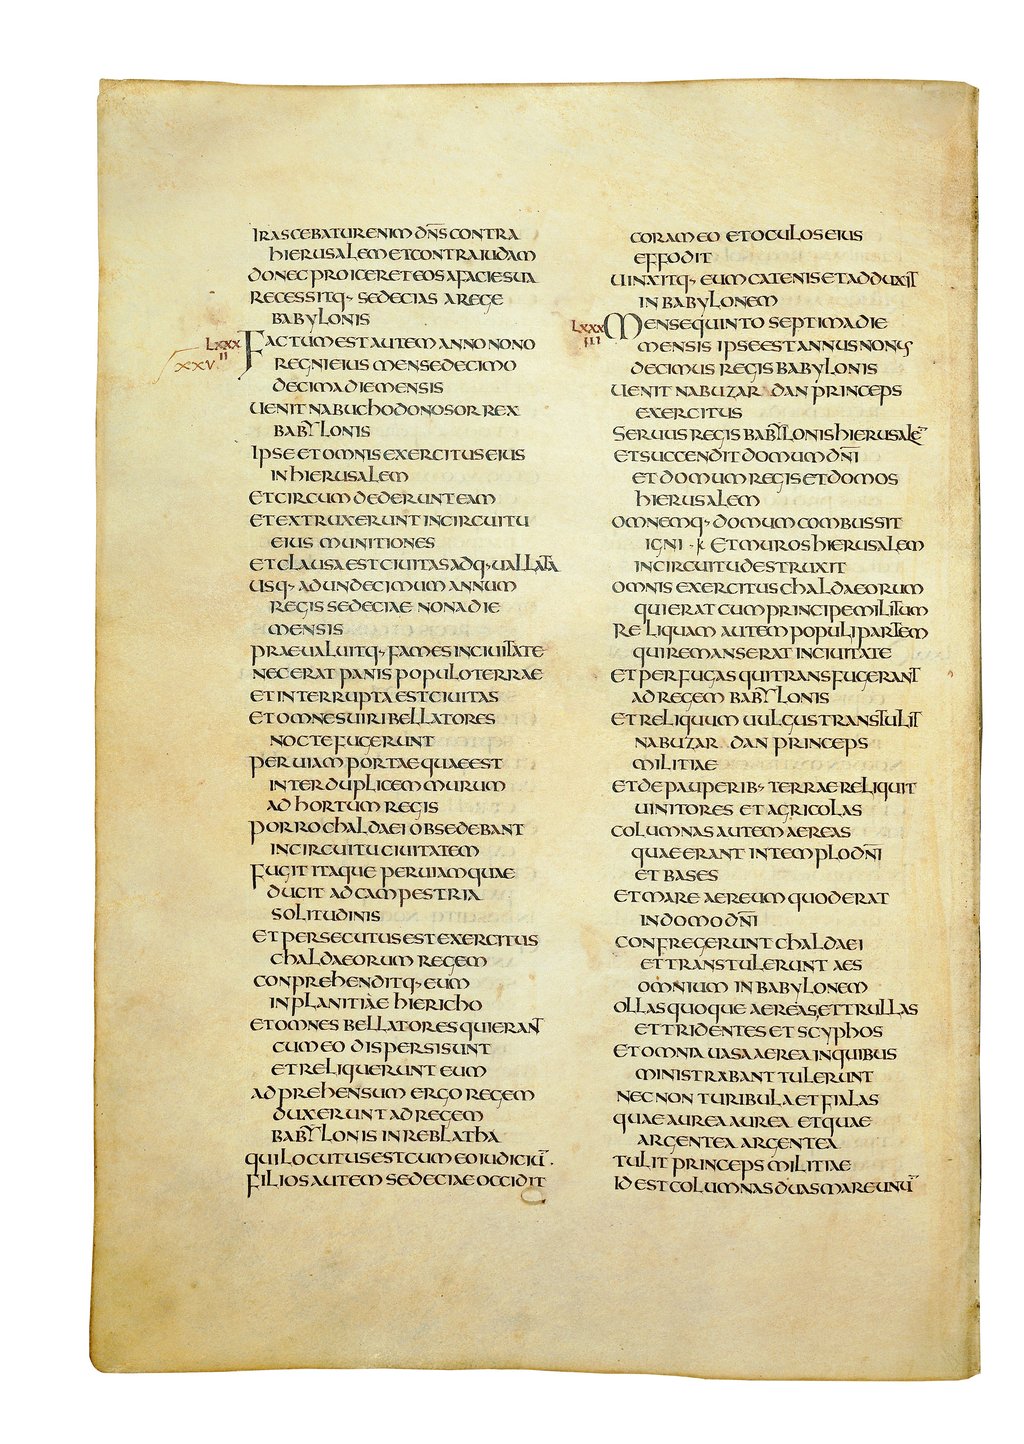 IRASCEBATUR ENIM D̅N̅S CONTRA
HIERUSALEM ET CONTRA IUDAM
DONEC PROICERET EOS A FACIE SUA
RECESSITQ· SEDECIAS A REGE
BABYLONIS
LXXXII
XXV
FACTUM EST AUTEM ANNO NONO
REGNI EIUS MENSE DECIMO
DECIMA DIE MENSIS
UENIT NABUCHODONOSOR REX
BABYLONIS
IPSE ET OMNIS EXERCITUS EIUS
IN HIERUSALEM
ET CIRCUMDEDERUNT EAM
ET EXTRUXERUNT IN CIRCUITU
EIUS MUNITIONES
ET CLAUSA EST CIUITAS ADQ· UALLATA
USQ· AD UNDECIMUM ANNUM
REGIS SEDECIAE NONA DIE
MENSIS
PRAEUALUITQ· FAMES IN CIUITATE
NEC ERAT PANIS POPULO TERRAE
ET INTERRUPTA EST CIUITAS
ET OMNES UIRI BELLATORES
NOCTE FUGERUNT
PER UIAM PORTAE QUAE EST
INTER DUPLICEM MURUM
AD HORTUM REGIS
PORRO CHALDAEI OBSEDEBANT
IN CIRCUITU CIUITATEM
FUGIT ITAQUE PER UIAM QUAE
DUCIT AD CAMPESTRIA
SOLITUDINIS
ET PERSECUTUS EST EXERCITUS
CHALDAEORUM REGEM
CONPREHENDITQ· EUM
IN PLANITIAE HIERICHO
ET OMNES BELLATORES QUI ERANT
CUM EO DISPERSI SUNT
ET RELIQUERUNT EUM
ADPREHENSUM ERGO REGEM
DUXERUNT AD REGEM
BABYLONIS IN REBLATHA
QUI LOCUTUS EST CUM EO IUDICIU̅·
FILIOS AUTEM SEDECIAE OCCIDIT
CORAM EO ET OCULOS EIUS
EFFODIT
UINXITQ· EUM CATENIS ET ADDUXIT
IN BABYLONEM
LXXXIII
MENSE QUINTO SEPTIMA DIE
MENSIS IPSE EST ANNUS NONUS
DECIMUS REGIS BABYLONIS
UENIT NABUZAR DAN PRINCEPS
EXERCITUS
SERUUS REGIS BABYLONIS HIERUSALE̅
ET SUCCENDIT DOMUM D̅N̅I
ET DOMUM REGIS ET DOMOS
HIERUSALEM
OMNEMQ· DOMUM COMBUSSIT
IGNI · K ET MUROS HIERUSALEM
IN CIRCUITU DESTRUXIT
OMNIS EXERCITUS CHALDAEORUM
QUI ERAT CUM PRINCIPE MILITUM
RELIQUAM AUTEM POPULI PARTEM
QUI REMANSERAT IN CIUITATE
ET PERFUGAS QUI TRANSFUGERANT
AD REGEM BABYLONIS
ET RELIQUUM UULGUS TRANSTULIT
NABUZAR DAN PRINCEPS
MILITIAE
ET DE PAUPERIB· TERRAE RELIQUIT
UINITORES ET AGRICOLAS
COLUMNAS AUTEM AEREAS
QUAE ERANT IN TEMPLO D̅N̅I
ET BASES
ET MARE AEREUM QUOD ERAT
IN DOMO D̅N̅I
CONFREGERUNT CHALDAEI
ET TRANSTULERUNT AES
OMNIUM IN BABYLONEM
OLLAS QUOQUE AEREAS, ET TRULLAS
ET TRIDENTES ET SCYPHOS
ET OMNIA UASA AEREA IN QUIBUS
MINISTRABANT TULERUNT
NEC NON TURIBULA ET FIALAS
QUAE AUREA AUREA ET QUAE
ARGENTEA ARGENTEA
TULIT PRINCEPS MILITIAE
ID EST COLUMNAS DUAS MARE UNU̅